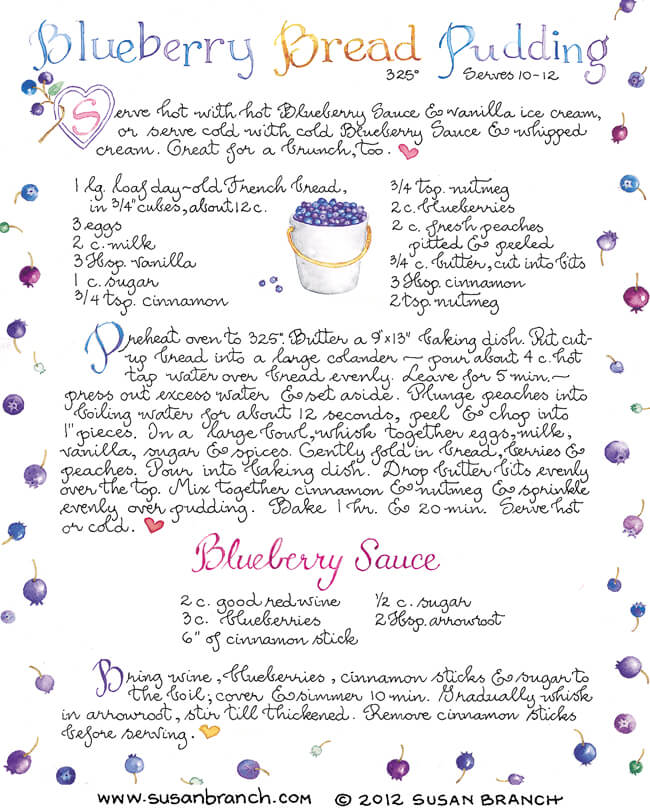 Blueberry Bread Pudding
325° Serves 10-12
Serve hot with hot Blueberry Sauce & vanilla ice cream,
or serve cold with cold Blueberry Sauce & whipped
cream. Great for a brunch, too.
1 lg. loaf day-old French bread,
in 3/4" cubes, about 12 c.
3 eggs
2 c. milk
3 Tbsp. vanilla
1 c. sugar
3/4 tsp. cinnamon
3/4 tsp. nutmeg
2 c. blueberries
2 c. fresh peaches
pitted & peeled
3/4 c. butter, cut into bits
3 Tbsp. cinnamon
2 tsp. nutmeg
Preheat oven to 325°. Butter a 9"x13" baking dish. Put cut-
up bread into a large colander ~ pour about 4 c. hot
tap water over bread evenly. Leave for 5 min. ~
press out excess water & set aside. Plunge peaches into
boiling water for about 12 seconds, peel & chop into
1" pieces. In a large bowl, whisk together eggs, milk,
vanilla, sugar & spices. Gently fold in bread, berries &
peaches. Pour into baking dish. Drop butter bits evenly
over the top. Mix together cinnamon & nutmeg & sprinkle
evenly over pudding. Bake 1 hr. & 20 min. Serve hot
or cold.
Blueberry Sauce
2 c. good red wine
3 c. blueberries
6" of cinnamon stick
1/2 c. sugar
2 Tbsp. arrowroot
Bring wine, blueberries, cinnamon sticks & sugar to
the boil; cover & simmer 10 min. Gradually whisk
in arrowroot, stir till thickened. Remove cinnamon sticks
before serving.
www.susanbranch.com © 2012 SUSAN BRANCH